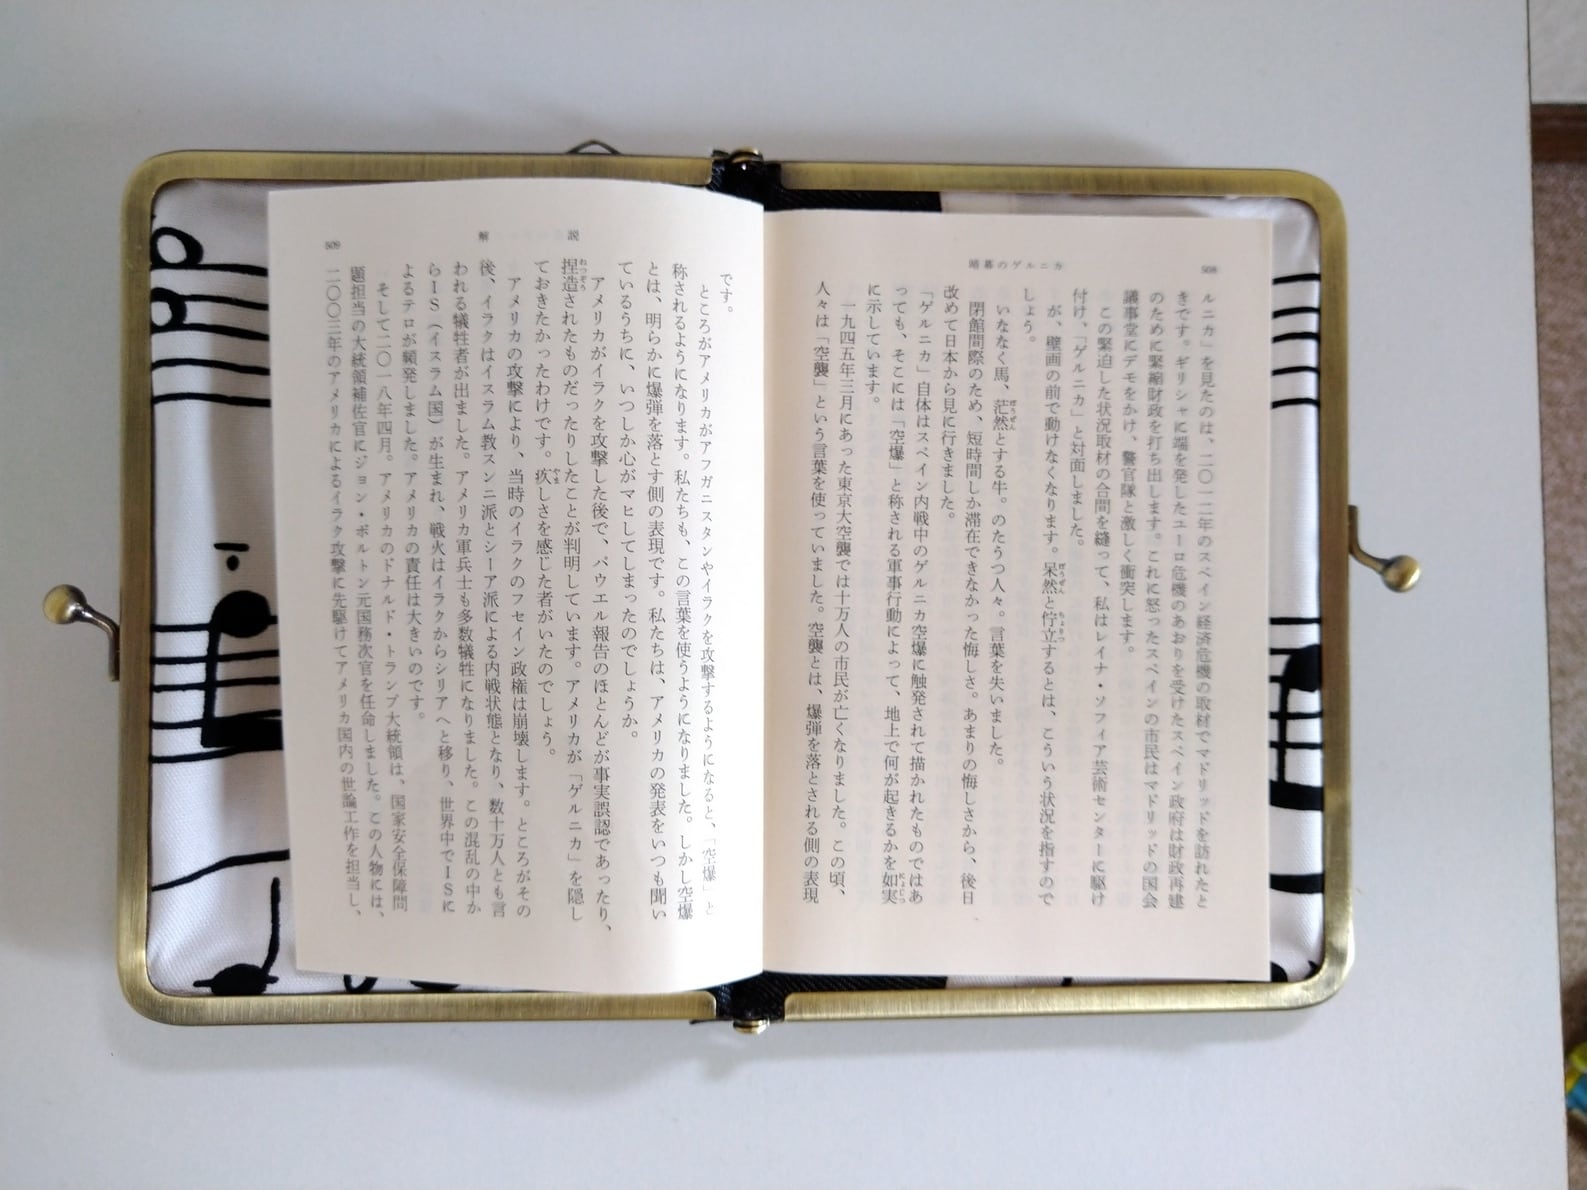 508
暗幕のゲルニカ
ルニカ」を見たのは、二〇一二年のスペイン経済危機の取材でマドリッドを訪れたと
きです。ギリシャに端を発したユーロ危機のあおりを受けたスペイン政府は財政再建
のために緊縮財政を打ち出します。これに怒ったスペインの市民はマドリッドの国会
議事堂にデモをかけ、警官隊と激しく衝突します。
この緊迫した状況取材の合間を縫って、私はレイナ・ソフィア芸術センターに駆け
付け、「ゲルニカ」と対面しました。
が、壁画の前で動けなくなります。呆然と佇立するとは、こういう状況を指すので
しょう。
いななく馬、茫然とする牛。のたうつ人々。言葉を失いました。
閉館間際のため、短時間しか滞在できなかった悔しさ。あまりの悔しさから、後日
改めて日本から見に行きました。
「ゲルニカ」自体はスペイン内戦中のゲルニカ空爆に触発されて描かれたものではあ
っても、そこには「空爆」と称される軍事行動によって、地上で何が起きるかを如実
に示しています。
一九四五年三月にあった東京大空襲では十万人の市民が亡くなりました。この頃、
人々は「空襲」という言葉を使っていました。空襲とは、爆弾を落とされる側の表現
解説
509
です。
ところがアメリカがアフガニスタンやイラクを攻撃するようになると、「空爆」と
称されるようになります。私たちも、この言葉を使うようになりました。しかし空爆
とは、明らかに爆弾を落とす側の表現です。私たちは、アメリカの発表をいつも聞い
ているうちに、いつしか心がマヒしてしまったのでしょうか。
アメリカがイラクを攻撃した後で、パウエル報告のほとんどが事実誤認であったり、
捏造されたものだったりしたことが判明しています。アメリカが「ゲルニカ」を隠し
ておきたかったわけです。疚しさを感じた者がいたのでしょう。
アメリカの攻撃により、当時のイラクのフセイン政権は崩壊します。ところがその
後、イラクはイスラム教スンニ派とシーア派による内戦状態となり、数十万人とも言
われる犠牲者が出ました。アメリカ軍兵士も多数犠牲になりました。この混乱の中か
らIS(イスラム国)が生まれ、戦火はイラクからシリアへと移り、世界中でISに
よるテロが頻発しました。アメリカの責任は大きいのです。
そして二〇一八年四月。アメリカのドナルド・トランプ大統領は、国家安全保障問
題担当の大統領補佐官にジョン・ボルトン元国務次官を任命しました。この人物には、
二〇〇三年のアメリカによるイラク攻撃に先駆けてアメリカ国内の世論工作を担当し、